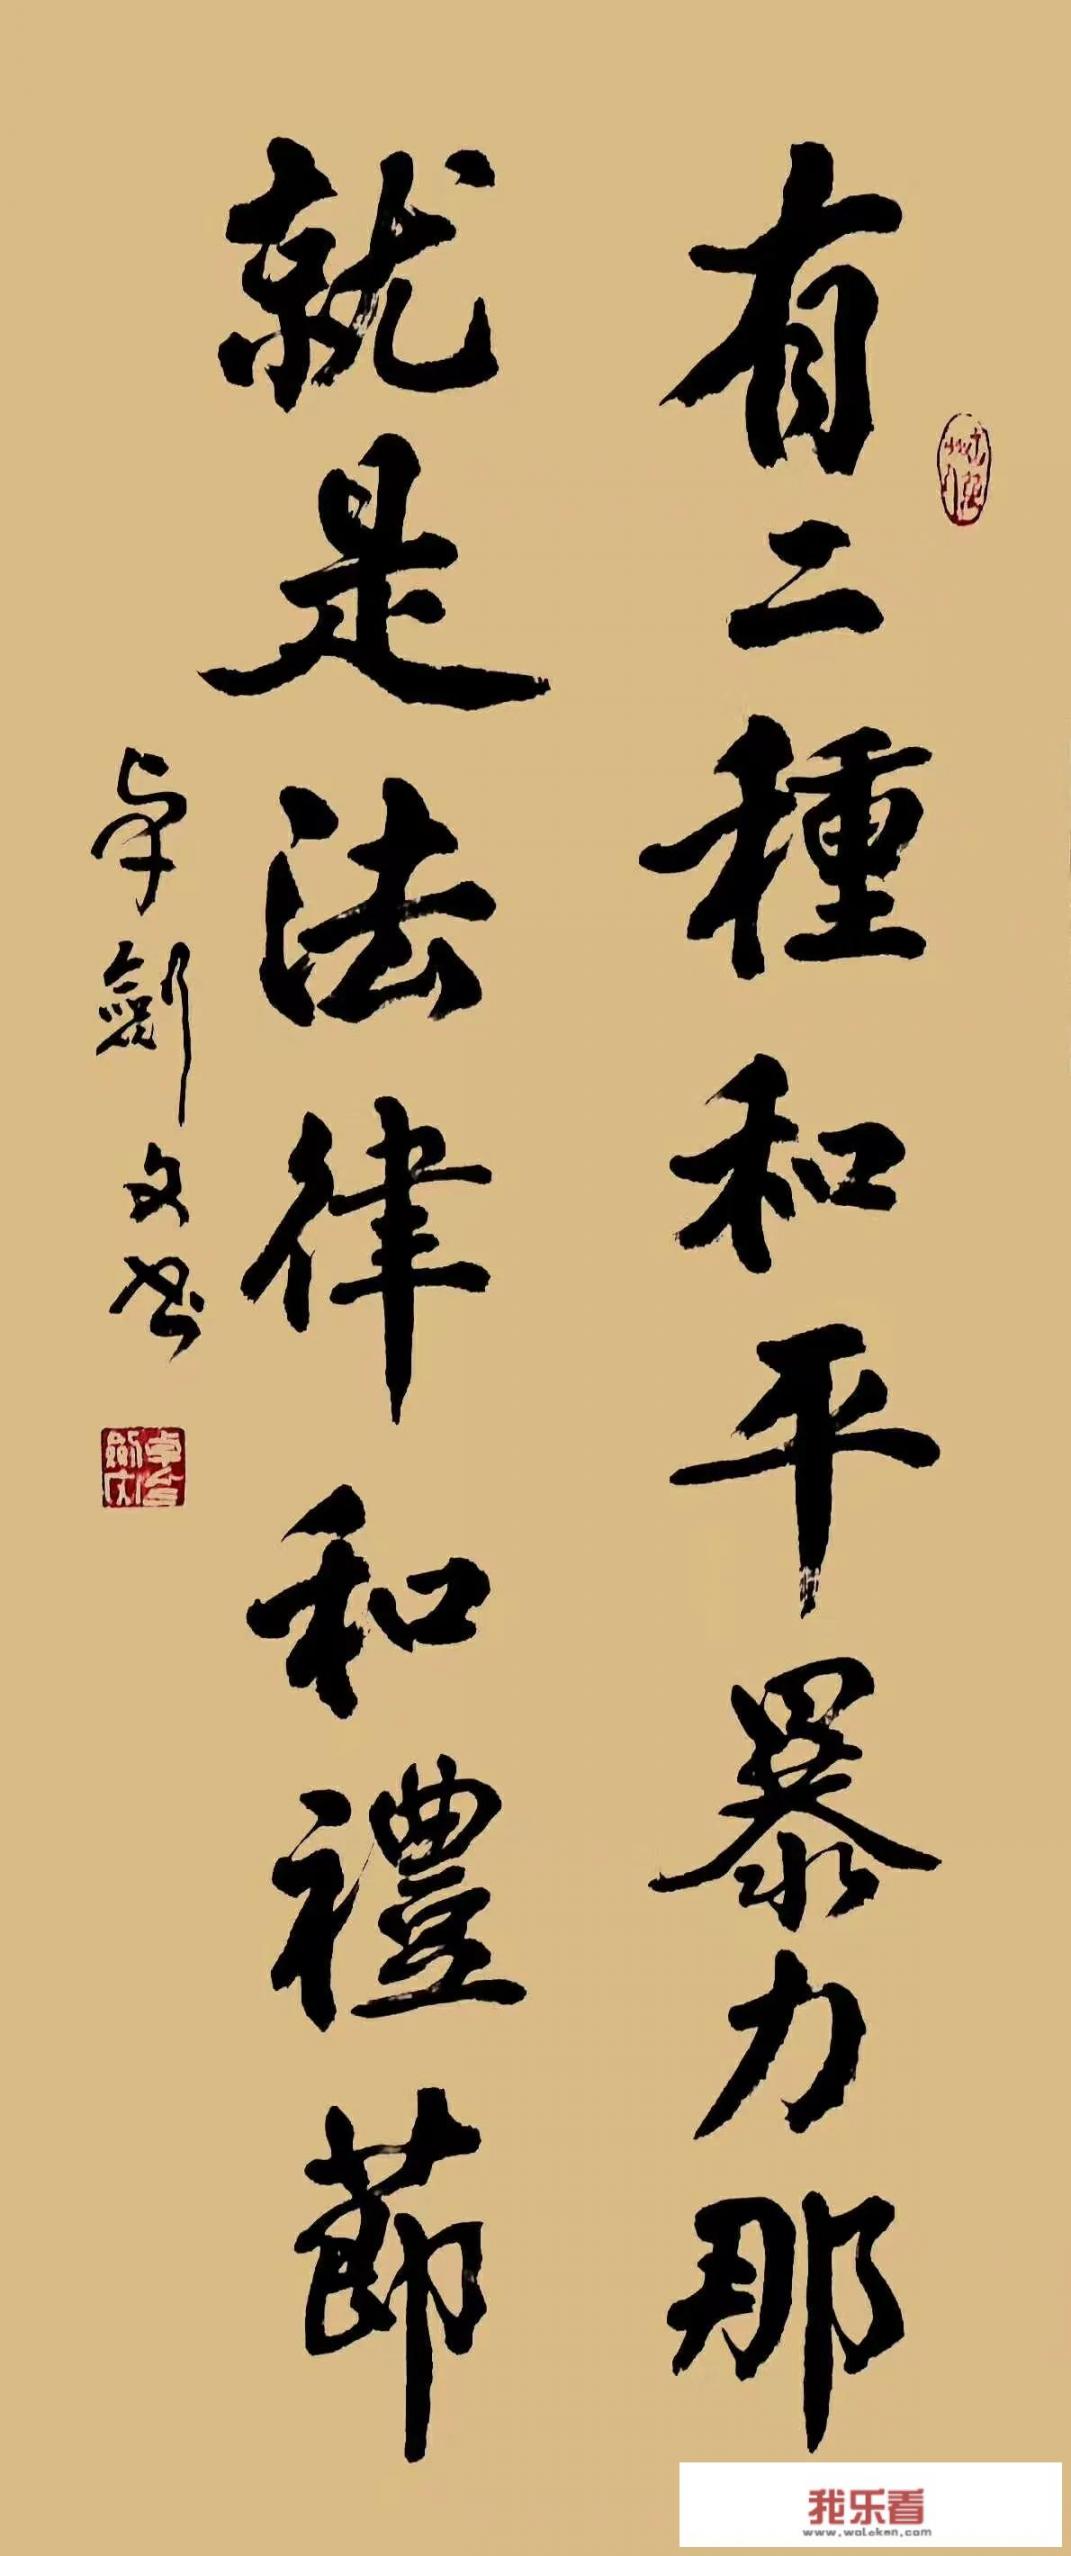 有二種和平暴力那
就是法律和禮節
卓劍文书
我乐看
www.woleken.com